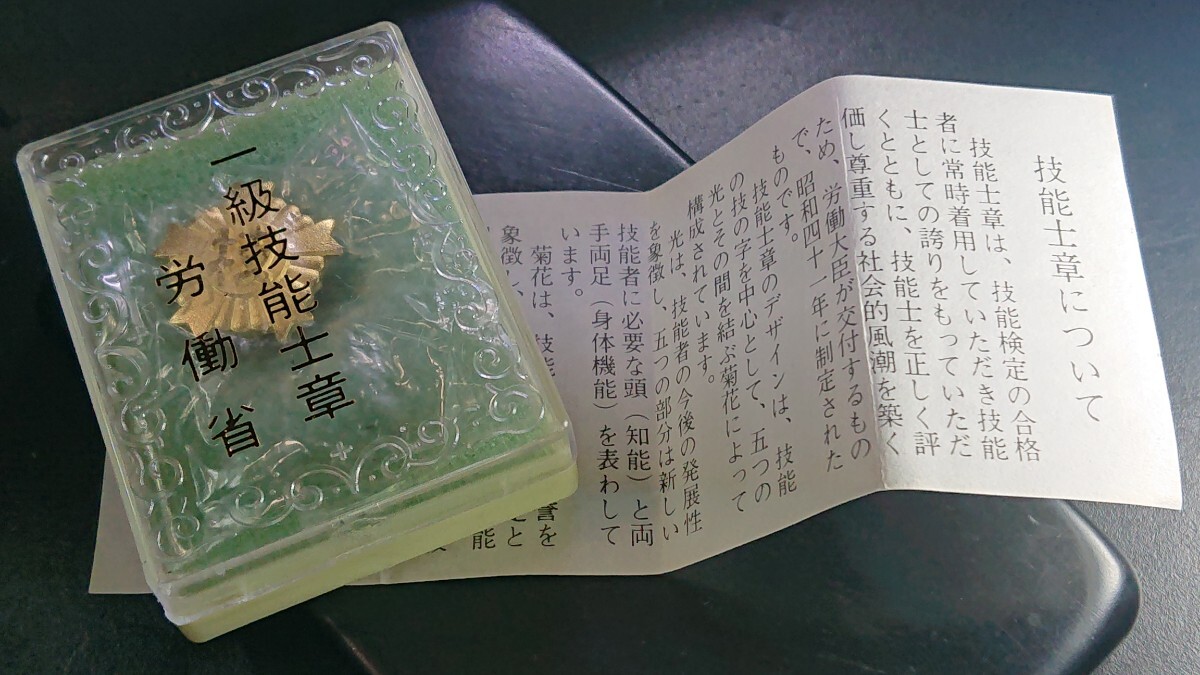 一級技能士章
労働省
技能士章について
技能士章は、技能検定の合格
者に常時着用していただき技能
士としての誇りをもっていただ
くとともに、技能士を正しく評
価し尊重する社会的風潮を築く
ため、労働大臣が交付するもの
で、昭和四十一年に制定された
ものです。
技能士章のデザインは、技能
の技の字を中心として、五つの
光とその間を結ぶ菊花によって
構成されています。
光は、技能者の今後の発展性
を象徴し、五つの部分は新しい
技能者に必要な頭(知能)と両
手両足(身体機能)を表わして
います。
菊花は、技能
象徴し、